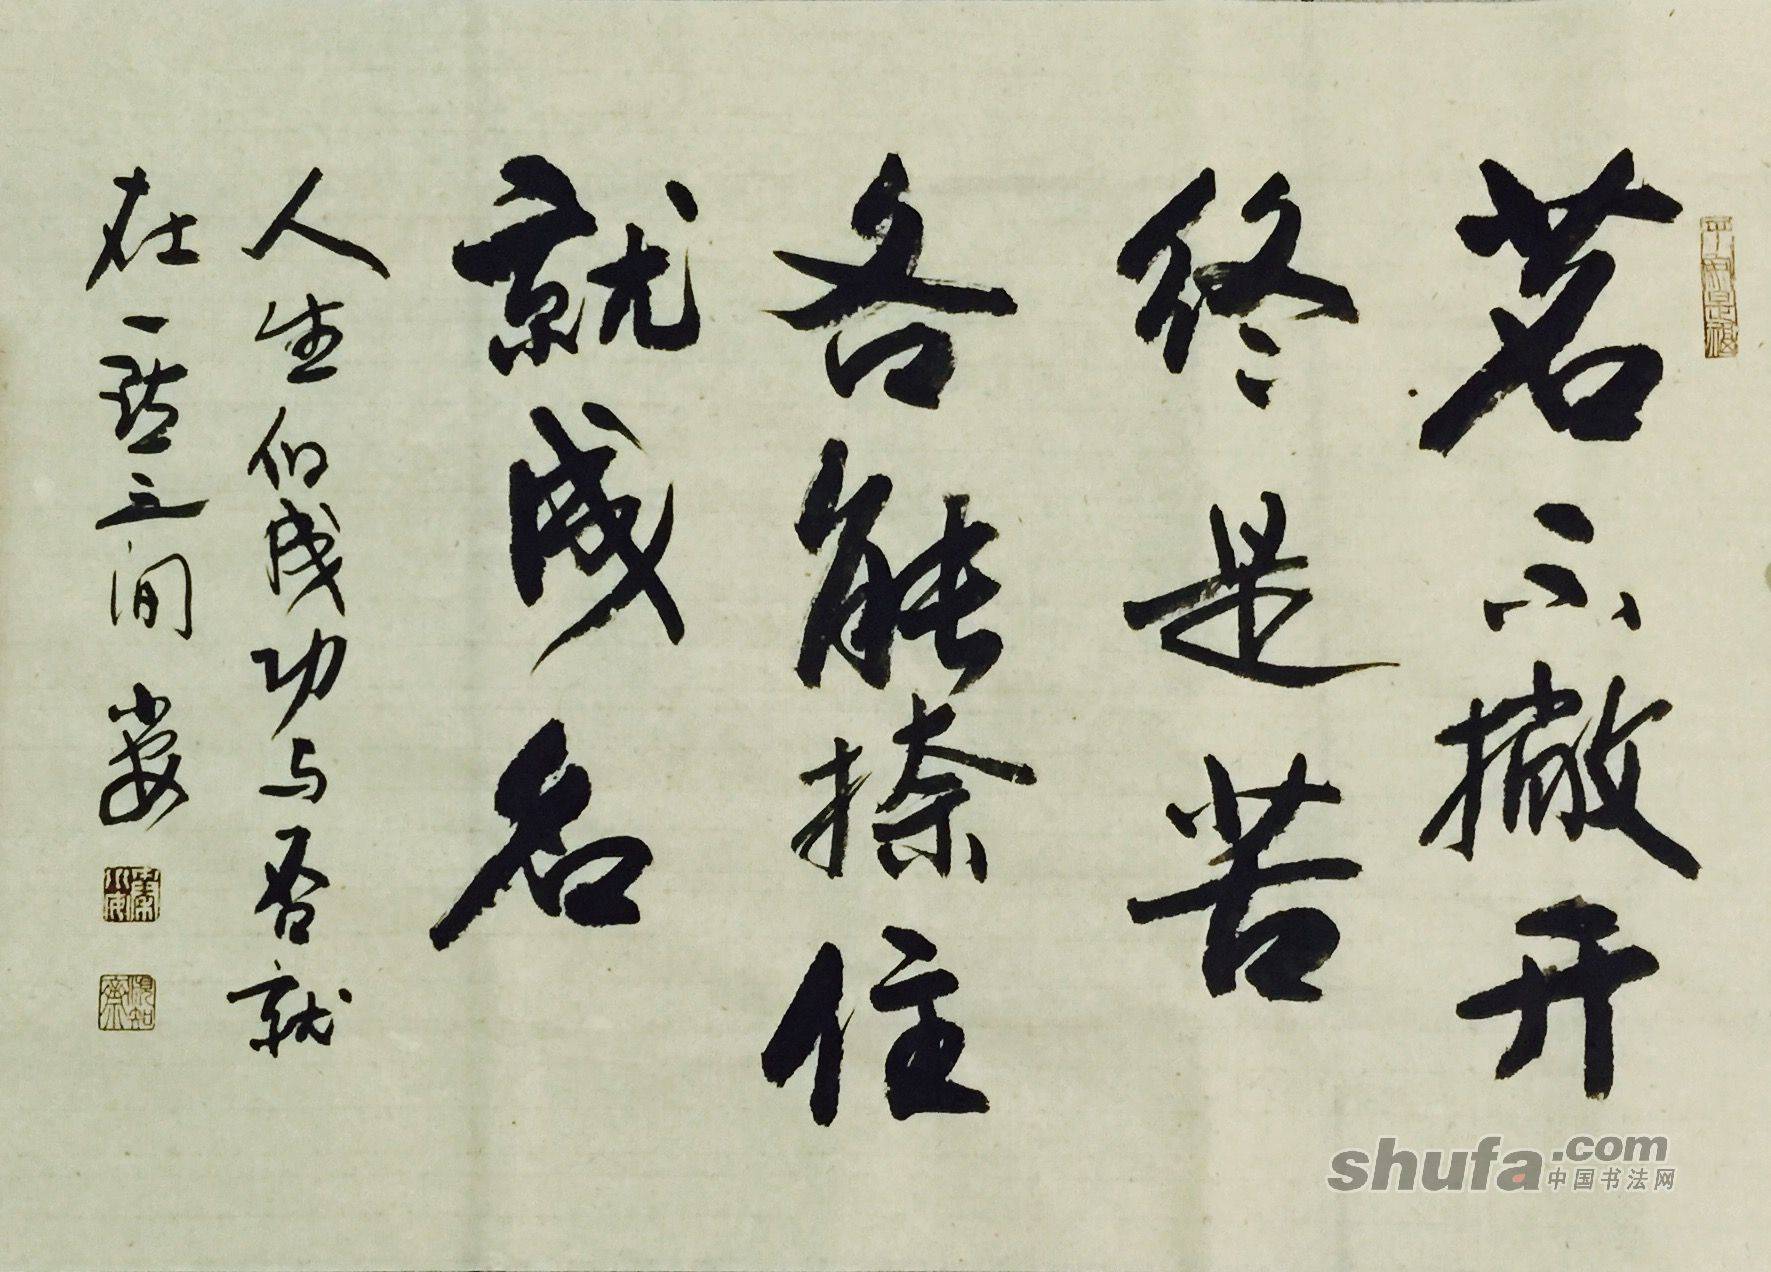 平安是福
若不撇开
终是苦
各能捺住
就成名
人生的成功与否就
在一之间
shufa.com
中国书法网